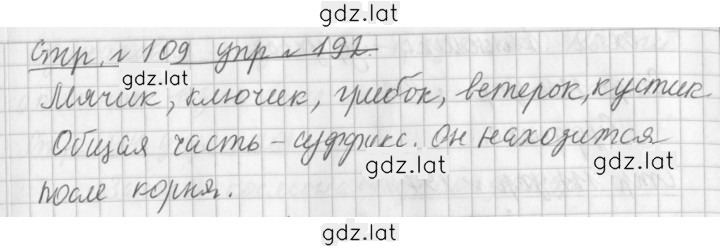 gdz.lat
Стр. № 109 упр № 192.
gdz.lat
Мячик, ключик, грибок, ветерок, кустик.
Общая часть - суффикс. Он находится
gdz.lat
после корня.
gdz.lat